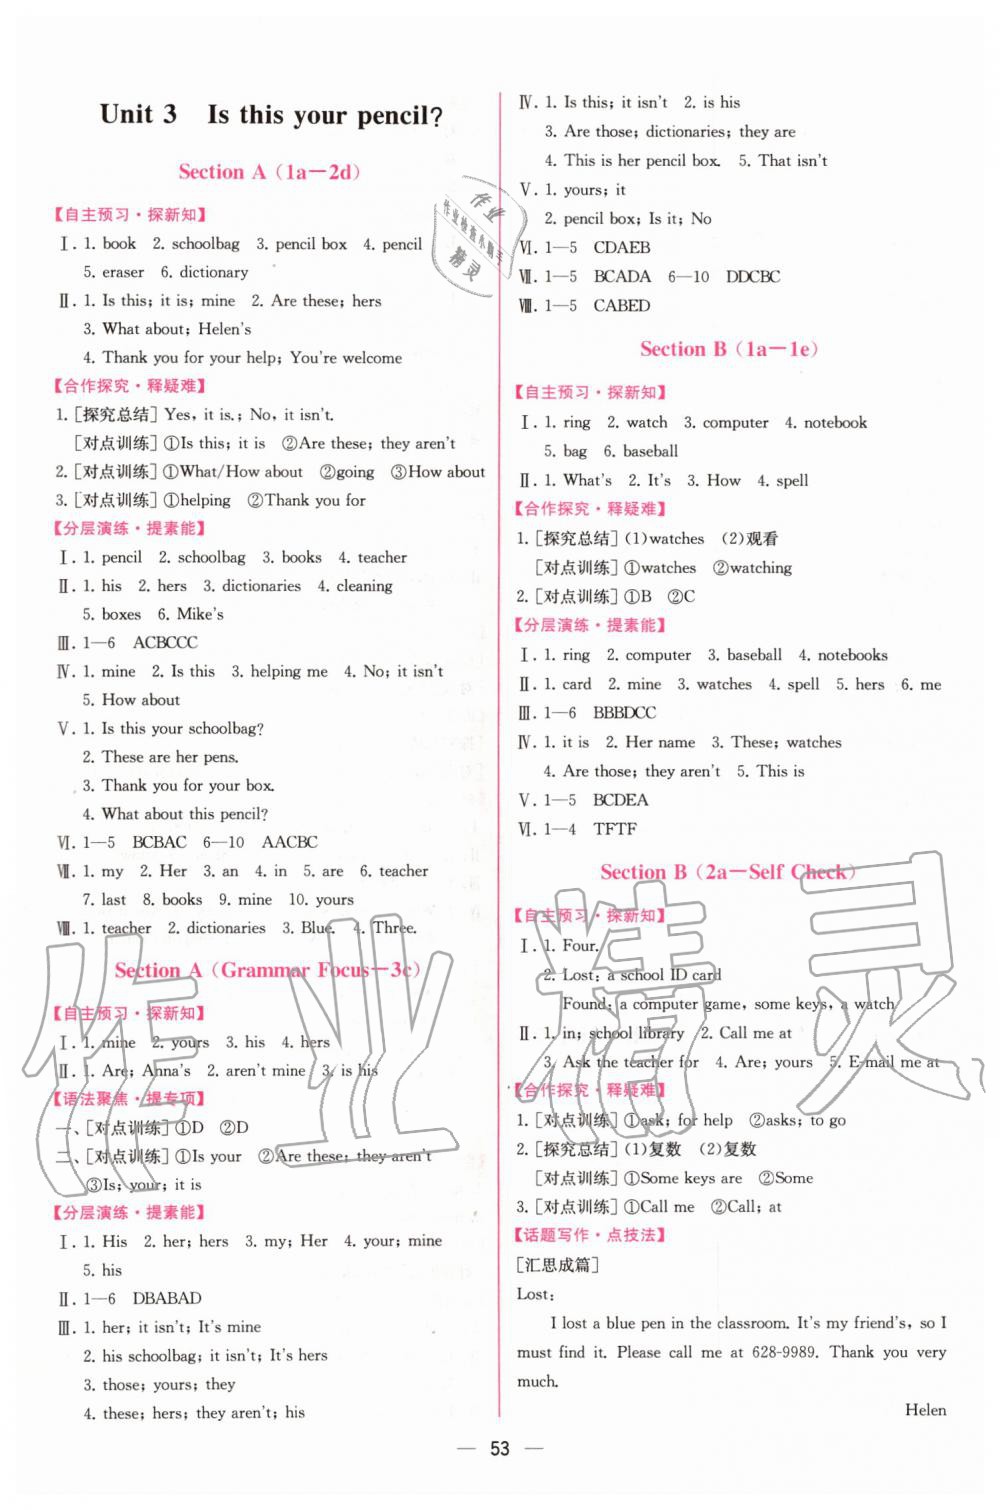 Unit 3 Is this your pencil?
Section A（1a—2d）
【自主预习·探新知】
Ⅰ. 1. book 2. schoolbag 3. pencil box 4. pencil
5. eraser 6. dictionary
Ⅱ. 1. Is this; it is; mine 2. Are these; hers
3. What about; Helen's
4. Thank you for your help; You're welcome
【合作探究·释疑难】
1. [探究总结] Yes, it is.; No, it isn't.
[对点训练] ①Is this; it is ②Are these; they aren't
2. [对点训练] ①What/How about ②going ③How about
3. [对点训练] ①helping ②Thank you for
【分层演练·提素能】
Ⅰ. 1. pencil 2. schoolbag 3. books 4. teacher
Ⅱ. 1. his 2. hers 3. dictionaries 4. cleaning
5. boxes 6. Mike's
Ⅲ. 1—6 ACBCCC
Ⅳ. 1. mine 2. Is this 3. helping me 4. No; it isn't
5. How about
Ⅴ. 1. Is this your schoolbag?
2. These are her pens.
3. Thank you for your box.
4. What about this pencil?
Ⅵ. 1—5 BCBAC 6—10 AACBC
Ⅶ. 1. my 2. Her 3. an 4. in 5. are 6. teacher
7. last 8. books 9. mine 10. yours
Ⅷ. 1. teacher 2. dictionaries 3. Blue. 4. Three.
Section A（Grammar Focus—3c）
【自主预习·探新知】
Ⅰ. 1. mine 2. yours 3. his 4. hers
Ⅱ. 1. Are; Anna's 2. aren't mine 3. is his
【语法聚焦·提专项】
一、[对点训练] ①D ②D
二、[对点训练] ①Is your ②Are these; they aren't
③Is; your; it is
【分层演练·提素能】
Ⅰ. 1. His 2. her; hers 3. my; Her 4. your; mine
5. his
Ⅱ. 1—6 DBABAD
Ⅲ. 1. her; it isn't; It's mine
2. his schoolbag; it isn't; It's hers
3. those; yours; they
4. these; hers; they aren't; his
Ⅳ. 1. Is this; it isn't 2. is his
3. Are those; dictionaries; they are
4. This is her pencil box. 5. That isn't
Ⅴ. 1. yours; it
2. pencil box; Is it; No
Ⅵ. 1—5 CDAEB
Ⅶ. 1—5 BCADA 6—10 DDCBC
Ⅷ. 1—5 CABED
Section B（1a—1e）
【自主预习·探新知】
Ⅰ. 1. ring 2. watch 3. computer 4. notebook
5. bag 6. baseball
Ⅱ. 1. What's 2. It's 3. How 4. spell
【合作探究·释疑难】
1. [探究总结] (1)watches (2)观看
[对点训练] ①watches ②watching
2. [对点训练] ①B ②C
【分层演练·提素能】
Ⅰ. 1. ring 2. computer 3. baseball 4. notebooks
Ⅱ. 1. card 2. mine 3. watches 4. spell 5. hers 6. me
Ⅲ. 1—6 BBBDCC
Ⅳ. 1. it is 2. Her name 3. These; watches
4. Are those; they aren't 5. This is
Ⅴ. 1—5 BCDEA
Ⅵ. 1—4 TFTF
Section B（2a—Self Check）
【自主预习·探新知】
Ⅰ. 1. Four.
2. Lost: a school ID card
Found: a computer game, some keys, a watch
Ⅱ. 1. in; school library 2. Call me at
3. Ask the teacher for 4. Are; yours 5. E-mail me at
【合作探究·释疑难】
1. [对点训练] ①ask; for help ②asks; to go
2. [探究总结] (1)复数 (2)复数
[对点训练] ①Some keys are ②Some
3. [对点训练] ①Call me ②Call; at
【话题写作·点技法】
[汇思成篇]
Lost:
I lost a blue pen in the classroom. It's my friend's, so I
must find it. Please call me at 628-9989. Thank you very
much.
Helen
— 53 —
作业
作业检查小助手
精灵
作业精灵